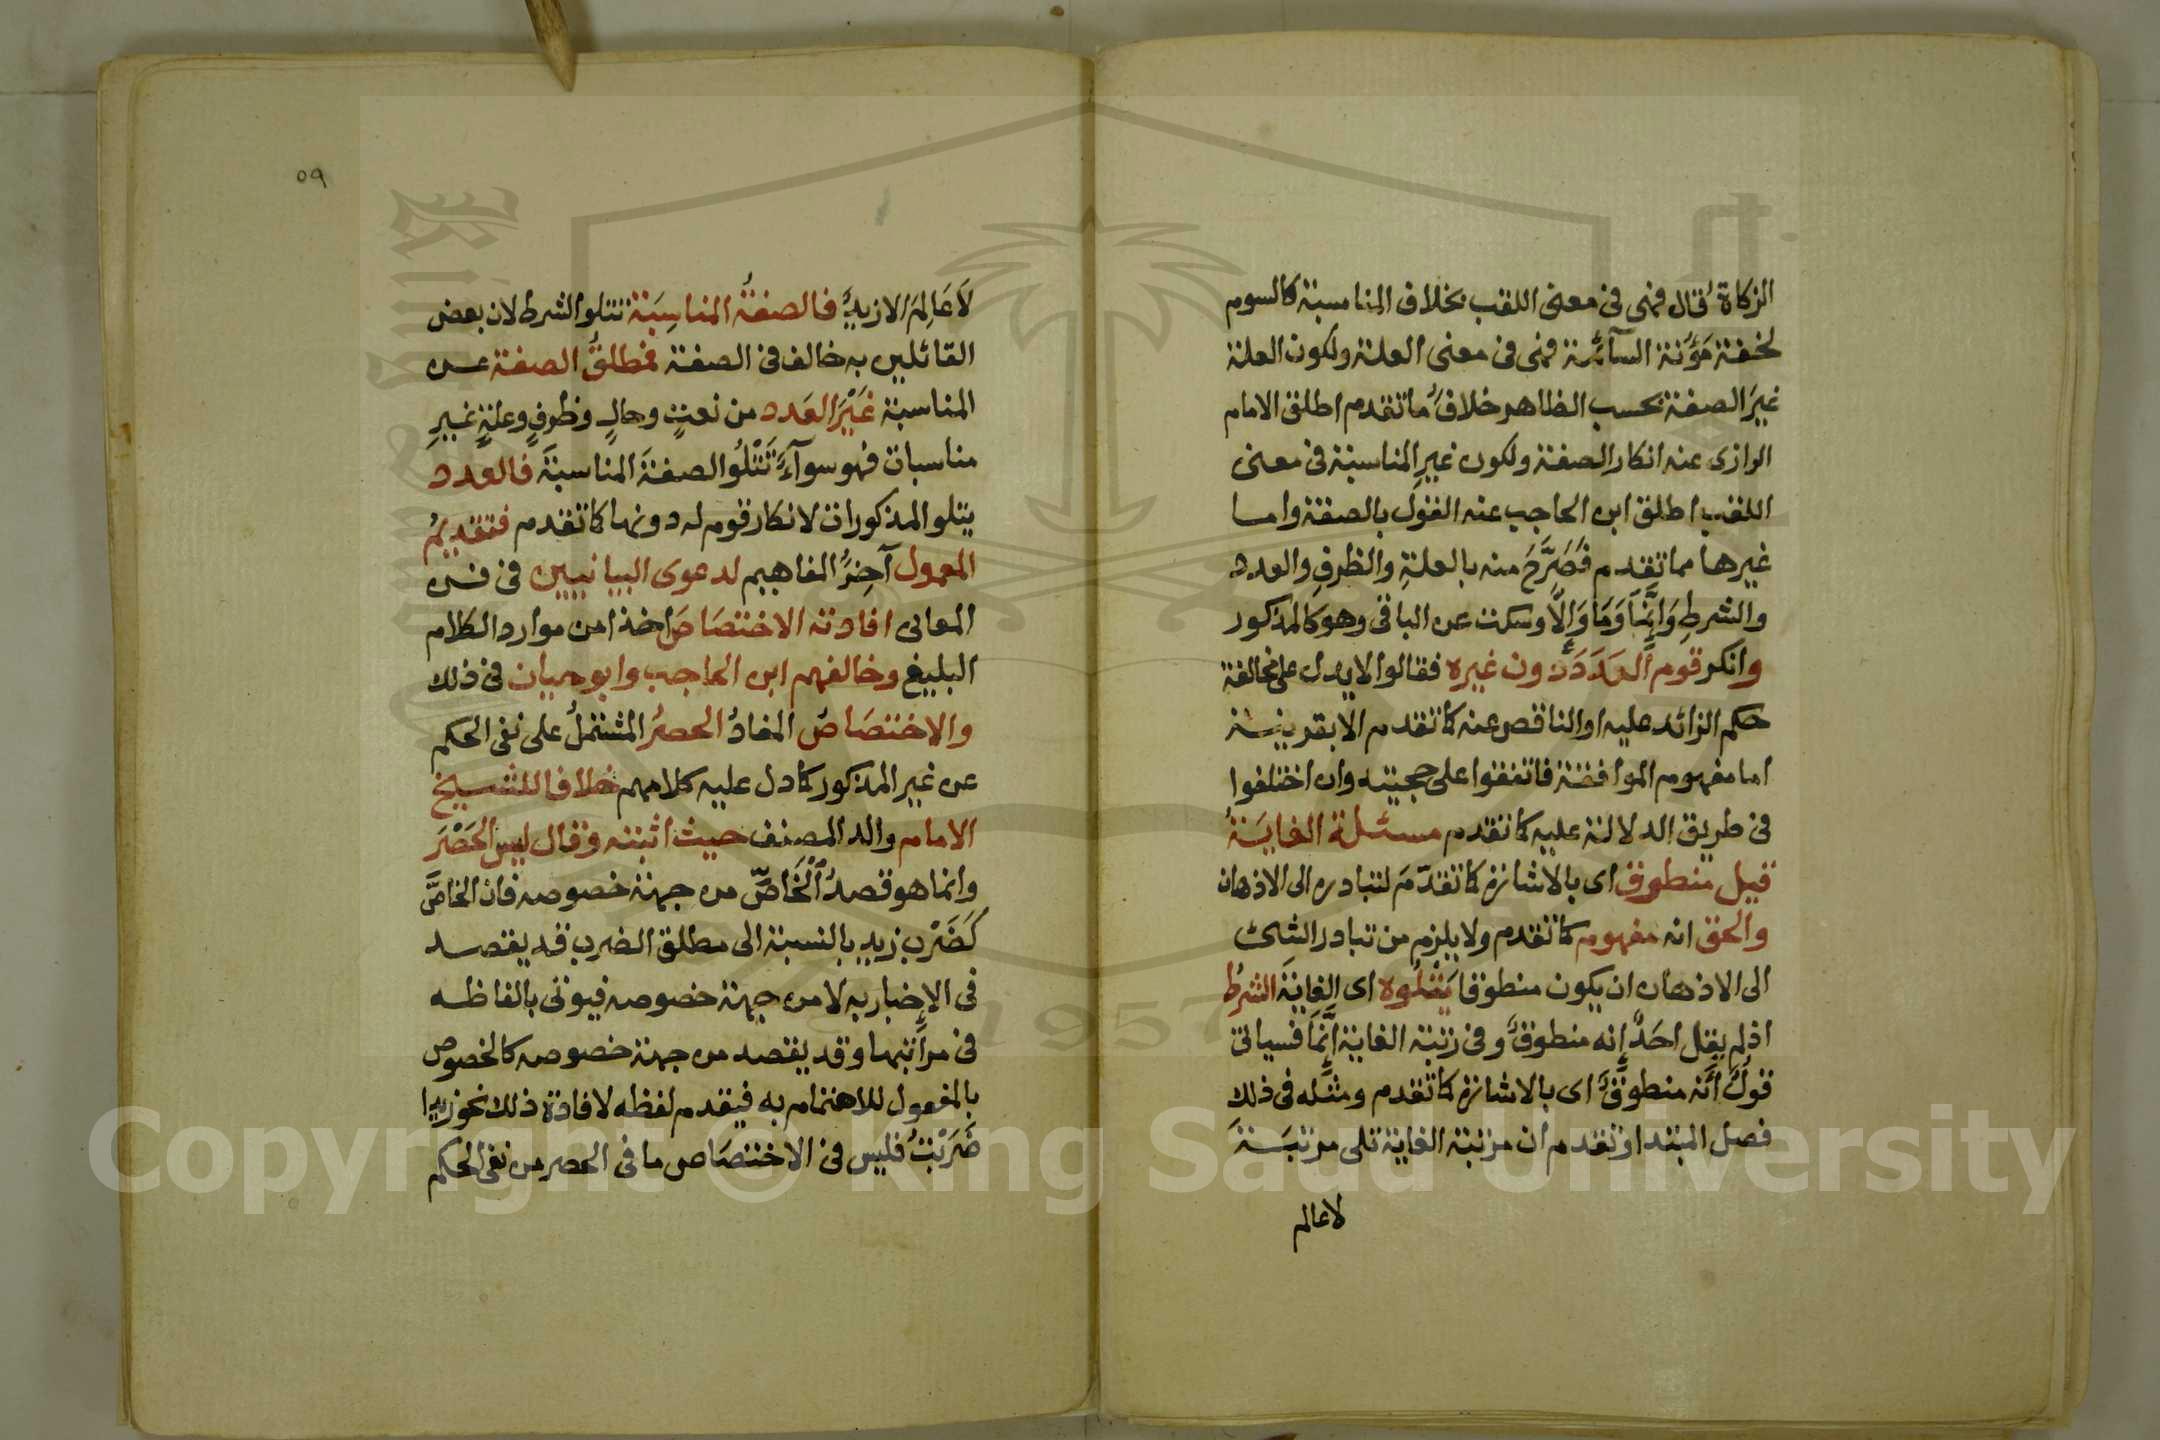 الزكاة قال فهى فى معنى اللقب بخلاف المناسبة كالسوم
لخفة مؤنة السآئمة فهى فى معنى العلة ولكون العلة
غيرَ الصفة بحسب الظاهر خلافَ ما تقدم اطلق الامام
الرازى عنه انكار الصفة ولكون غيرِ المناسبة فى معنى
اللقب اطلق ابن الحاجب عنه القول بالصفة واما
غيرها مما تقدم فَصَرَّحَ منه بالعلةِ والظرفِ والعدد
والشرطِ وَإِنَّمَا وَمَا وَإِلَّا وسكت عن الباقى وهو كالمذكور
وانكر قوم العددَ دون غيره فقالوا لا يدل على مخالفة
حكم الزائد عليه او الناقص عنه كما تقدم الا بقرينة
اما مفهوم الموافقة فاتفقوا على حجيته وان اختلفوا
فى طريق الدلالة عليه كما تقدم مسئلة الغايَةُ
قيل منطوق اى بالاشارة كما تقدّمَ لتبادره الى الاذهان
والحق انه مفهوم كما تقدم ولا يلزم من تبادر الشئ
الى الاذهان ان يكون منطوقا يَتْلُوه اى الغايةَ الشرطُ
اذ لم يقل احَدٌ إِنه منطوقٌ وفى رتبة الغاية إِنَّمَا فسياتى
قولٌ أَنَّه منطوقٌ اى بالاشارة كما تقدم ومثله فى ذلك
فصل المبتدا وتقدم ان مرتبة الغاية تلى مرتبَةَ
لا عالم
٥٩
لَا عَالِمَ الا زيدٌ فالصفةُ المناسِبَة تتلو الشرط لان بعض
القائلين به خالف فى الصفة فمطلقُ الصفة عن
المناسبة غَيْرَ العَدد من نعتٍ وحالٍ وظرفٍ وعلةٍ غيرِ
مناسبات فهو سوآءٌ تَتْلُو الصفةَ المناسبةَ فالعدد
يتلو المذكورات لانكار قوم له دونها كما تقدم فتقديمُ
المعمول آخِرُ المفاهيم لدعوى البيانيين فى فن
المعانى افادته الاختصَاصَ اخذا من موارد الكلام
البليغ وخالفهم ابن الحاجب وابو حيان فى ذلك
والاختصَاصُ المفادُ الحصرُ المشتملُ على نفى الحكم
عن غير المذكور كما دل عليه كلامهم خلافا للشيخ
الامام والد المصنف حيث اثبته وقال ليس الحَصْرَ
وانما هو قصدُ الْخَاصِّ من جهة خصوصه فان الخاصَّ
كَضَرْب زيد بالنسبة الى مطلق الضرب قد يقصد
فى الاخبار به لا من جهة خصوصه فيوتى بالفاظه
فى مراتبها وقد يقصد من جهة خصوصه كالخصوص
بالمفعول للاهتمام به فيقدم لفظه لافادة ذلك نحو زيدا
ضَرَبْتُ فليس فى الاختصَاص ما فى الحصر من نفى الحكم
1957
Copyright © King Saud University